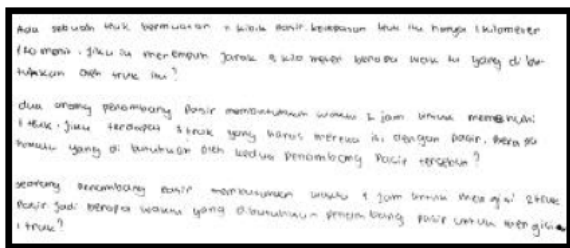 Ada sebuah truk bermuatan kibik pasir. kecepatan truk itu hanya 1 kilometer
menit. jika ia menempuh jarak kilo meter berapa wak tu yang di bu-
tuhkan oleh truk itu?
dua orang penambang pasir membutuhkan waktu jam untuk memenuhi
1 truk. jika terdapat 3 truk yang harus mereka isi dengan pasir, bera pa
yang di butuhkan oleh kedua penambang pasir tersebut?
seorang penambang pasir membutuhkan waktu 1 jam untuk mengisi 2 truk
pasir. jadi berapa waktu yang dibutuhkan penambang pasir untuk mengisi
1 truk?